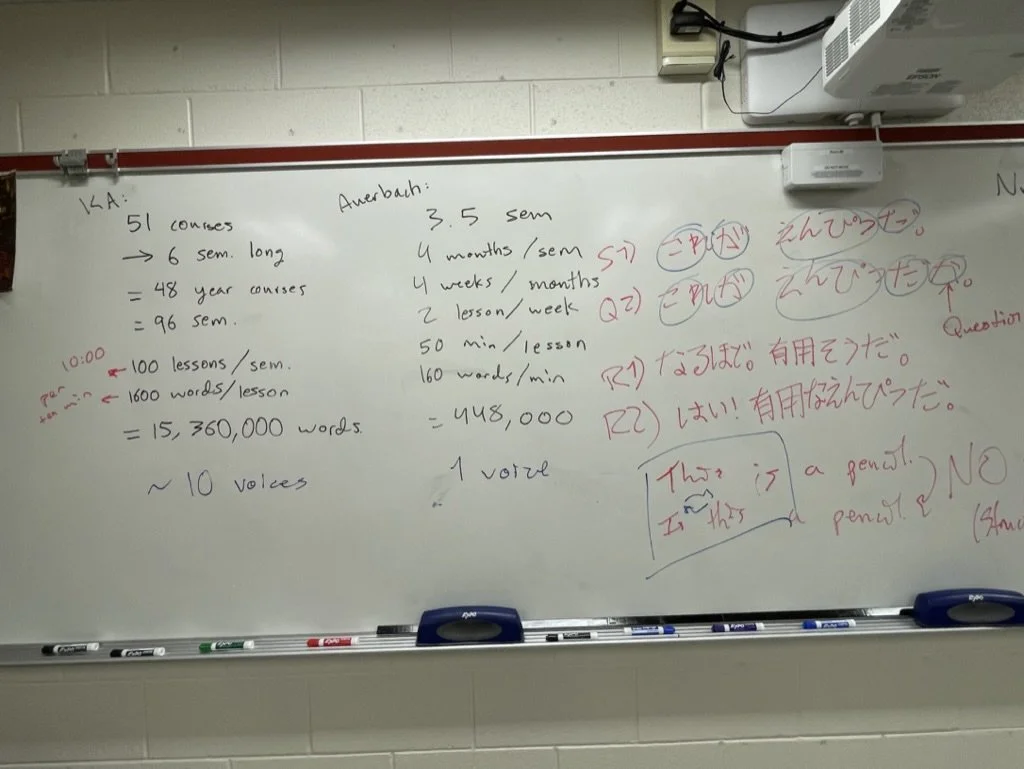 KA:
51 courses
→ 6 sem. long
= 48 year courses
= 96 sem.
10:00
← 100 lessons/sem.
per
ten min
← 1600 words/lesson
= 15,360,000 words.
~ 10 voices
Auerbach:
3.5 sem
4 months/sem
4 weeks/months
2 lesson/week
50 min/lesson
160 words/min
= 448,000
1 voice
S1) これが えんぴつだ。
Q2) これが えんぴつだか。
↑
Question
R1) なるほど。有用そうだ。
R2) はい!有用なえんぴつだ。
This is a pencil.
Is this a pencil?
NO
EPSON
EXPO
EXPO